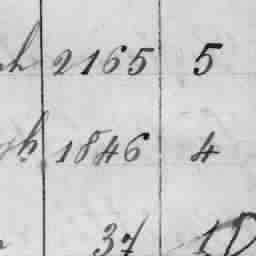 h 2165 5
h 1846 4
37 1D